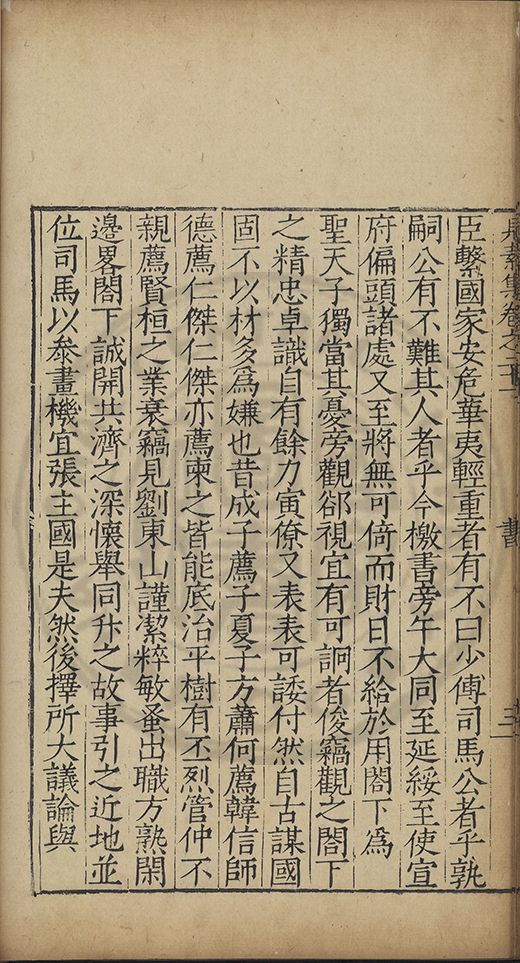 臣繫國家安危華夷輕重者有不曰少傅司馬公者乎孰
嗣公有不難其人者乎今檄書旁午大同至延綏至使宣
府偏頭諸處又至將無可倚而財日不給於用閣下爲
聖天子獨當其憂旁觀郤視宜有可詗者俊竊觀之閣下
之精忠卓識自有餘力寅僚又表表可諉付然自古謀國
固不以材多爲嫌也昔成子薦子夏子方蕭何薦韓信師
德薦仁傑仁傑亦薦柬之皆能底治平樹有丕烈管仲不
親薦賢桓之業衰竊見劉東山謹潔粹敏蚤出職方熟閑
邊畧閣下誠開共濟之深懷舉同升之故事引之近地並
位司馬以叅畫機宜張主國是夫然後擇所大議論與